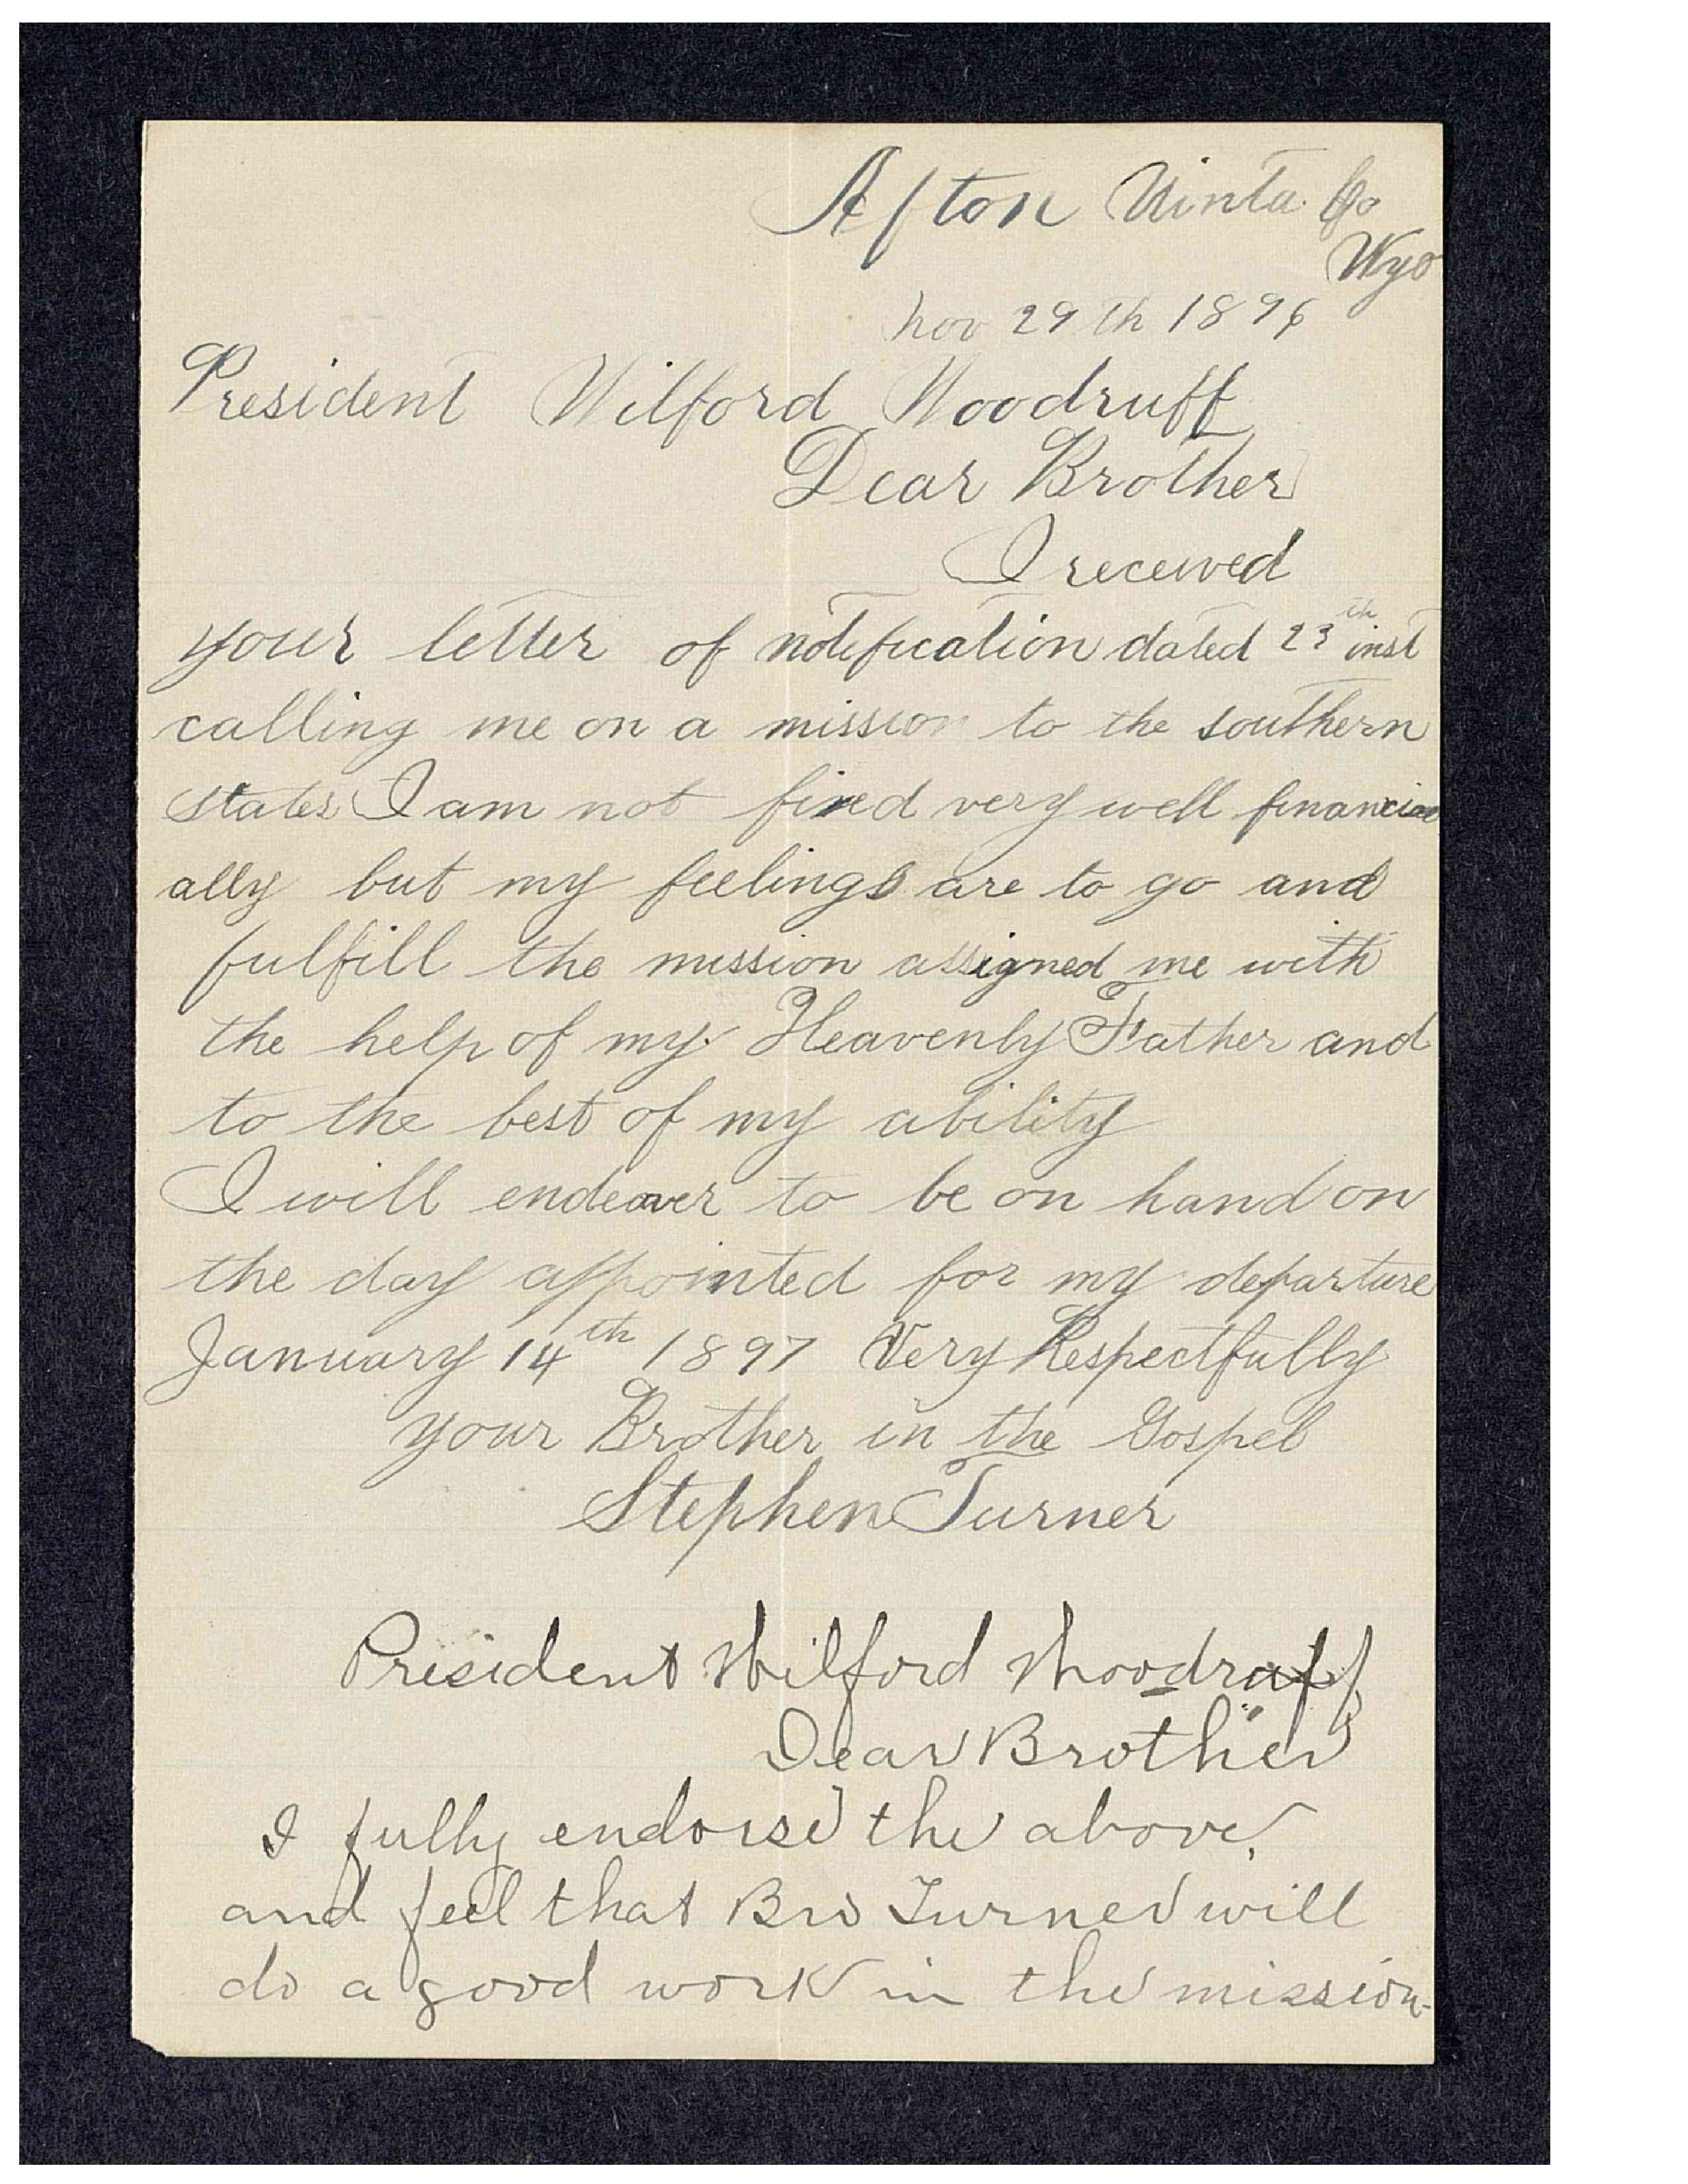 Afton Uinta Co
Wyo
nov 29th 1896
President Wilford Woodruff
Dear Brother
I received
your letter of notification dated 23th inst
calling me on a mission to the southern
states I am not fixed very well financi
ally but my feelings are to go and
fulfill the mission assigned me with
the help of my Heavenly Father and
to the best of my ability
I will endeaver to be on hand on
the day appointed for my departure
January 14th 1897 Very Respectfully
your Brother in the Gospel
Stephen Turner
President Wilford Woodruff
Dear Brother
I fully endorse the above,
and feel that Bro Turner will
do a good work in the mission-